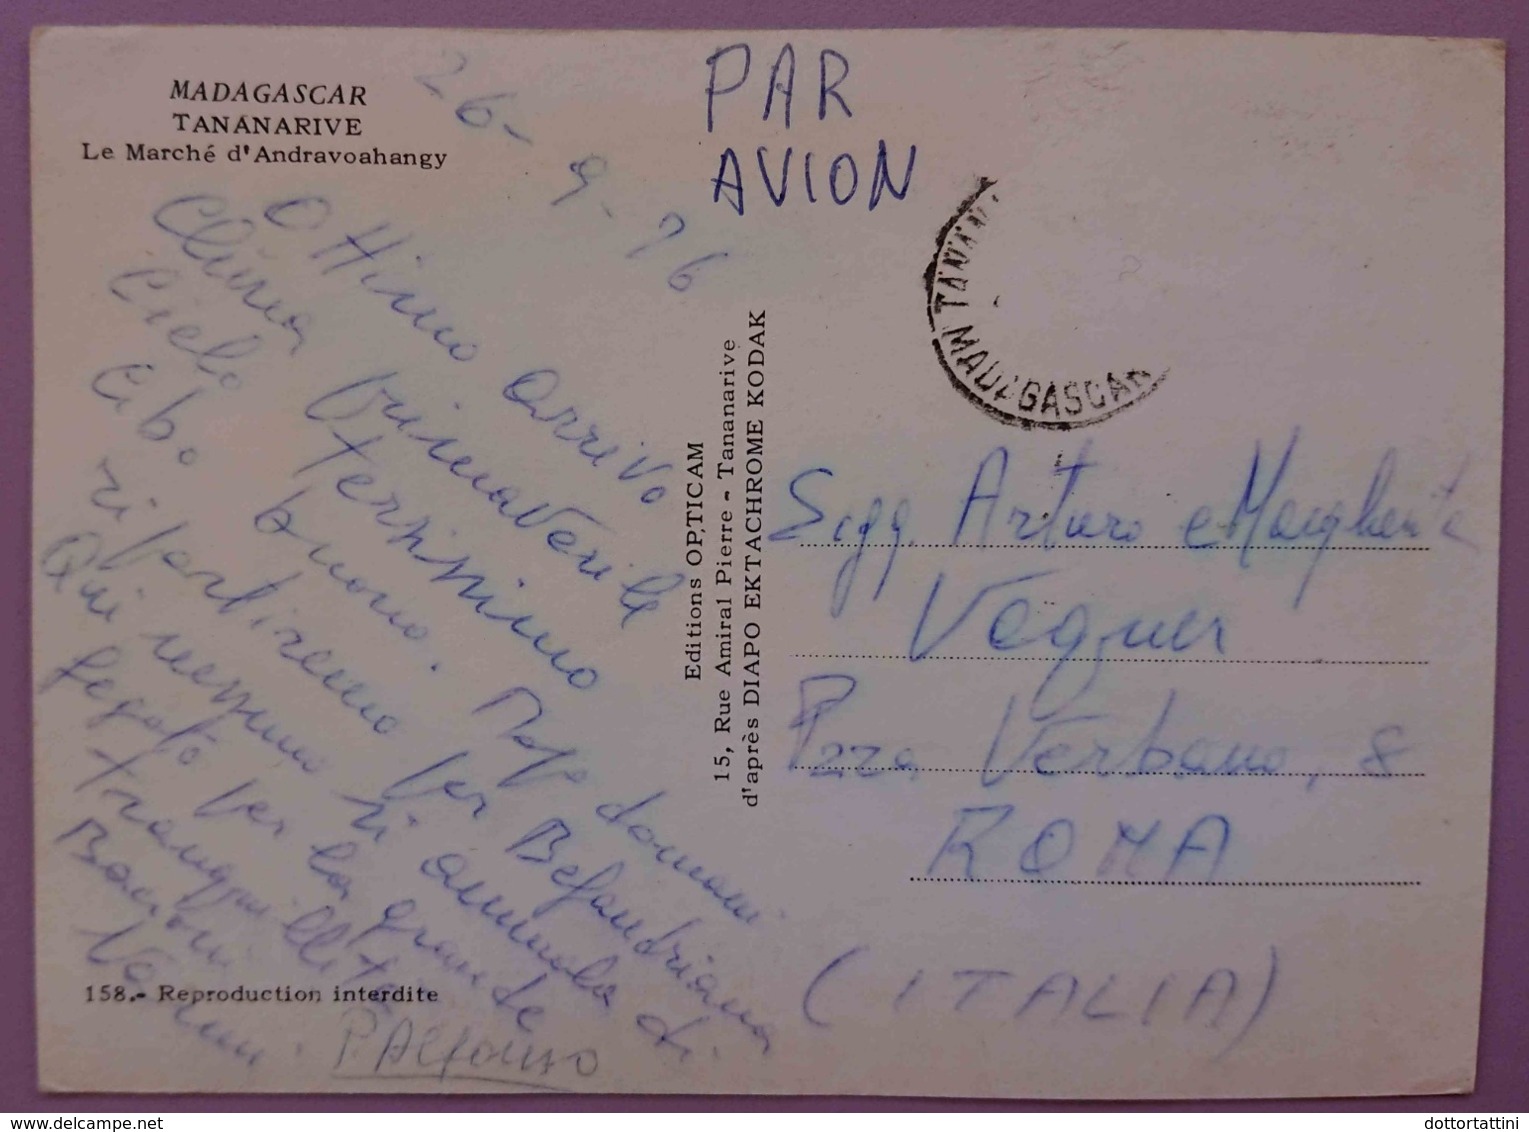 MADAGASCAR
TANANARIVE
Le Marché d'Andravoahangy
26-9-76
Ottimo arrivo
Clima primaverile
Cielo tersissimo
Cibo buono. Dopo domani
ripartiremo per Befandriana
Qui nessuno si ammala di
fegato per la grande
tranquillità
Vanni. P. Alfonso
158.- Reproduction interdite
Editions OPTICAM
15, Rue Amiral Pierre - Tananarive
d'après DIAPO EKTACHROME KODAK
PAR
AVION
TANANA
MADAGASCAR
Sigg. Arturo e Margherita
Pzza Verbano, 8
ROMA
(ITALIA)
dottortattini